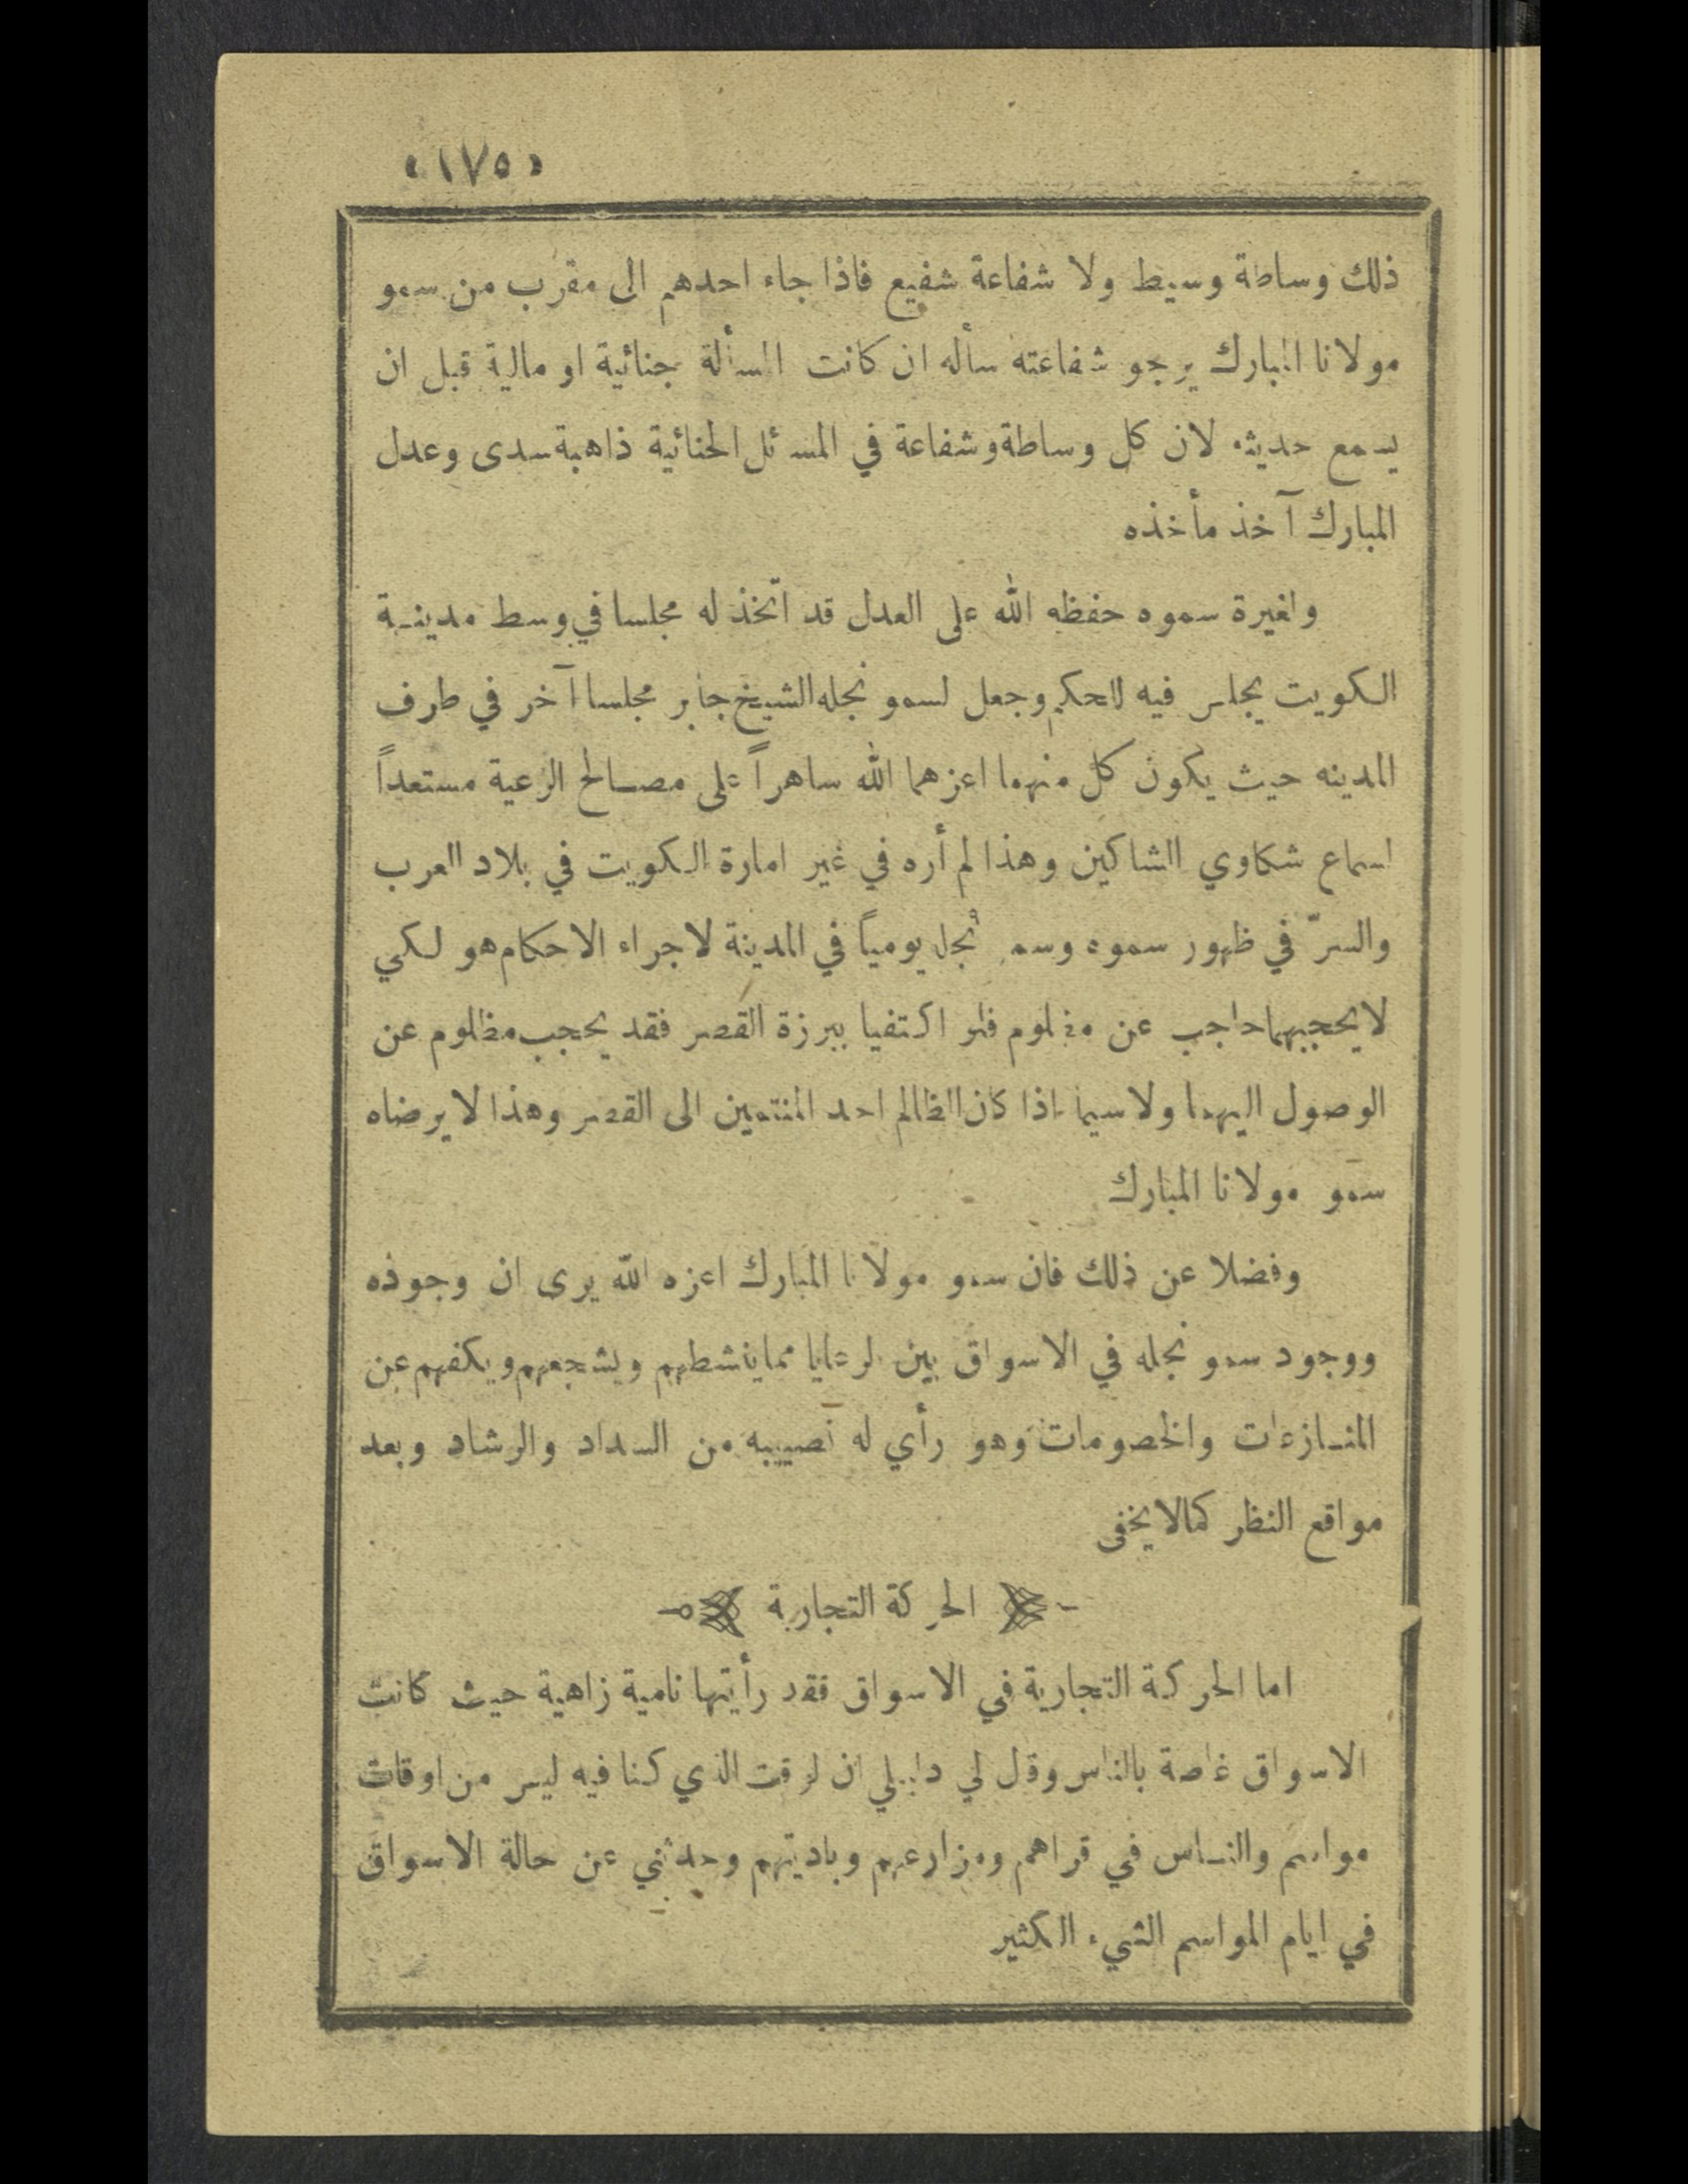 «١٧٥»
ذلك وساطة وسيط ولا شفاعة شفيع فاذا جاء احدهم الى مقرب من سمو
مولانا المبارك يرجو شفاعته سأله ان كانت المسألة جنائية او مالية قبل ان
يسمع حديثه لان كل وساطة وشفاعة في المسائل الجنائية ذاهبة سدى وعدل
المبارك آخذ مأخذه
ولغيرة سموه حفظه الله على العدل قد اتخذ له مجلسا في وسط مدينـة
الكويت يجلس فيه للحكم وجعل لسمو نجله الشيخ جابر مجلسا آخر في طرف
المدينه حيث يكون كل منهما اعزهما الله ساهراً على مصـالح الرعية مستعداً
لسماع شكاوي الشاكين وهذا لم أره في غير امارة الكويت في بلاد العرب
والسرّ في ظهور سموه وسمو نجله يومياً في المدينة لاجراء الاحكام هو لكي
لا يحجبهما حاجب عن مظلوم فلو اكتفيا ببرزة القصر فقد يحجب مظلوم عن
الوصول اليهما ولا سيما اذا كان الظالم احد المنتمين الى القصر وهذا لا يرضاه
سمو مولانا المبارك
وفضلا عن ذلك فان سمو مولانا المبارك اعزه الله يرى ان وجوده
ووجود سمو نجله في الاسواق بين الرعايا مما ينشطهم ويشجعهم ويكفهم عن
المنـازعات والخصومات وهو رأي له نصيبه من السداد والرشاد وبعد
مواقع النظر كما لا يخفى
الحركة التجارية
اما الحركة التجارية في الاسواق فقد رأيتها نامية زاهية حيث كانت
الاسواق غاصة بالناس وقال لي دليلي ان الوقت الذي كنا فيه ليس من اوقات
مواسم والنـاس في قراهم ومزارعهم وباديتهم وحدثني عن حالة الاسواق
في ايام المواسم الشيء الكثير